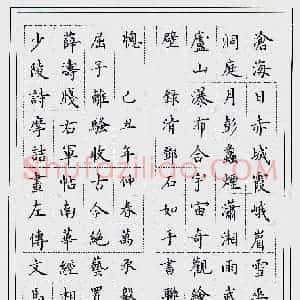 滄海日赤城霞峨眉雪巫
洞庭月彭蠡煙瀟湘雨武
廬山瀑布合宇宙奇觀繪
壁 錄清鄧石如手書聯
少陵詩摩詰畫左傳文馬
薛濤牋右軍帖南華經相
屈子離騷收古今絕藝置
牕 己丑年仲春萬承
Shufaziliao.com